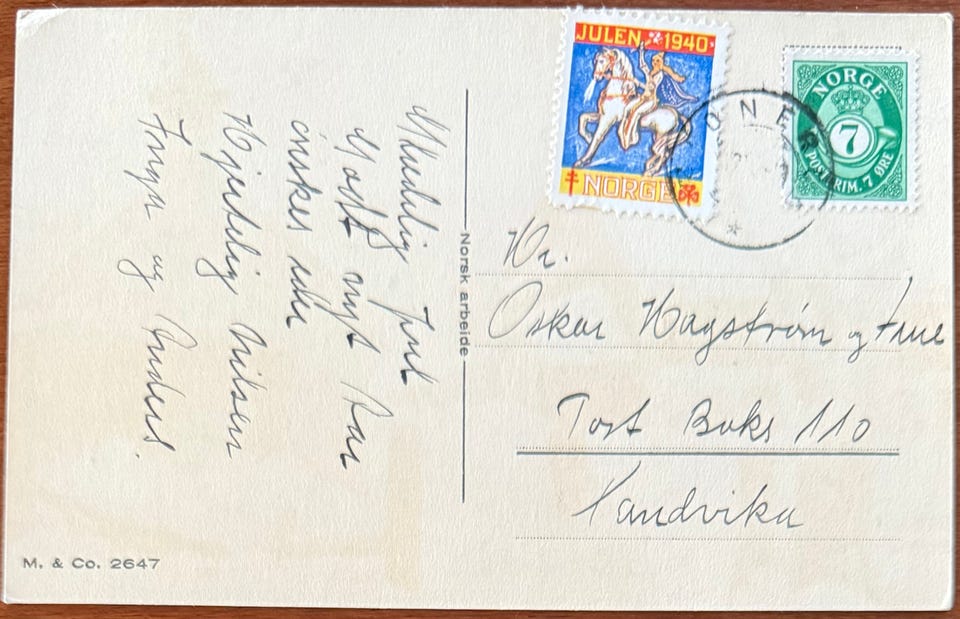 Gledelig Jul
Godt nytt Aar
ønskes eder
Hjertelig hilsen
og Anders.
Norsk arbeide
M. & Co. 2647
JULEN 1940
NORGE
NORGE
7
POSTFRIM. 7 ØRE
Hr.
Oskar Hagstrøm og Frue
Post Boks 110
Sandvika